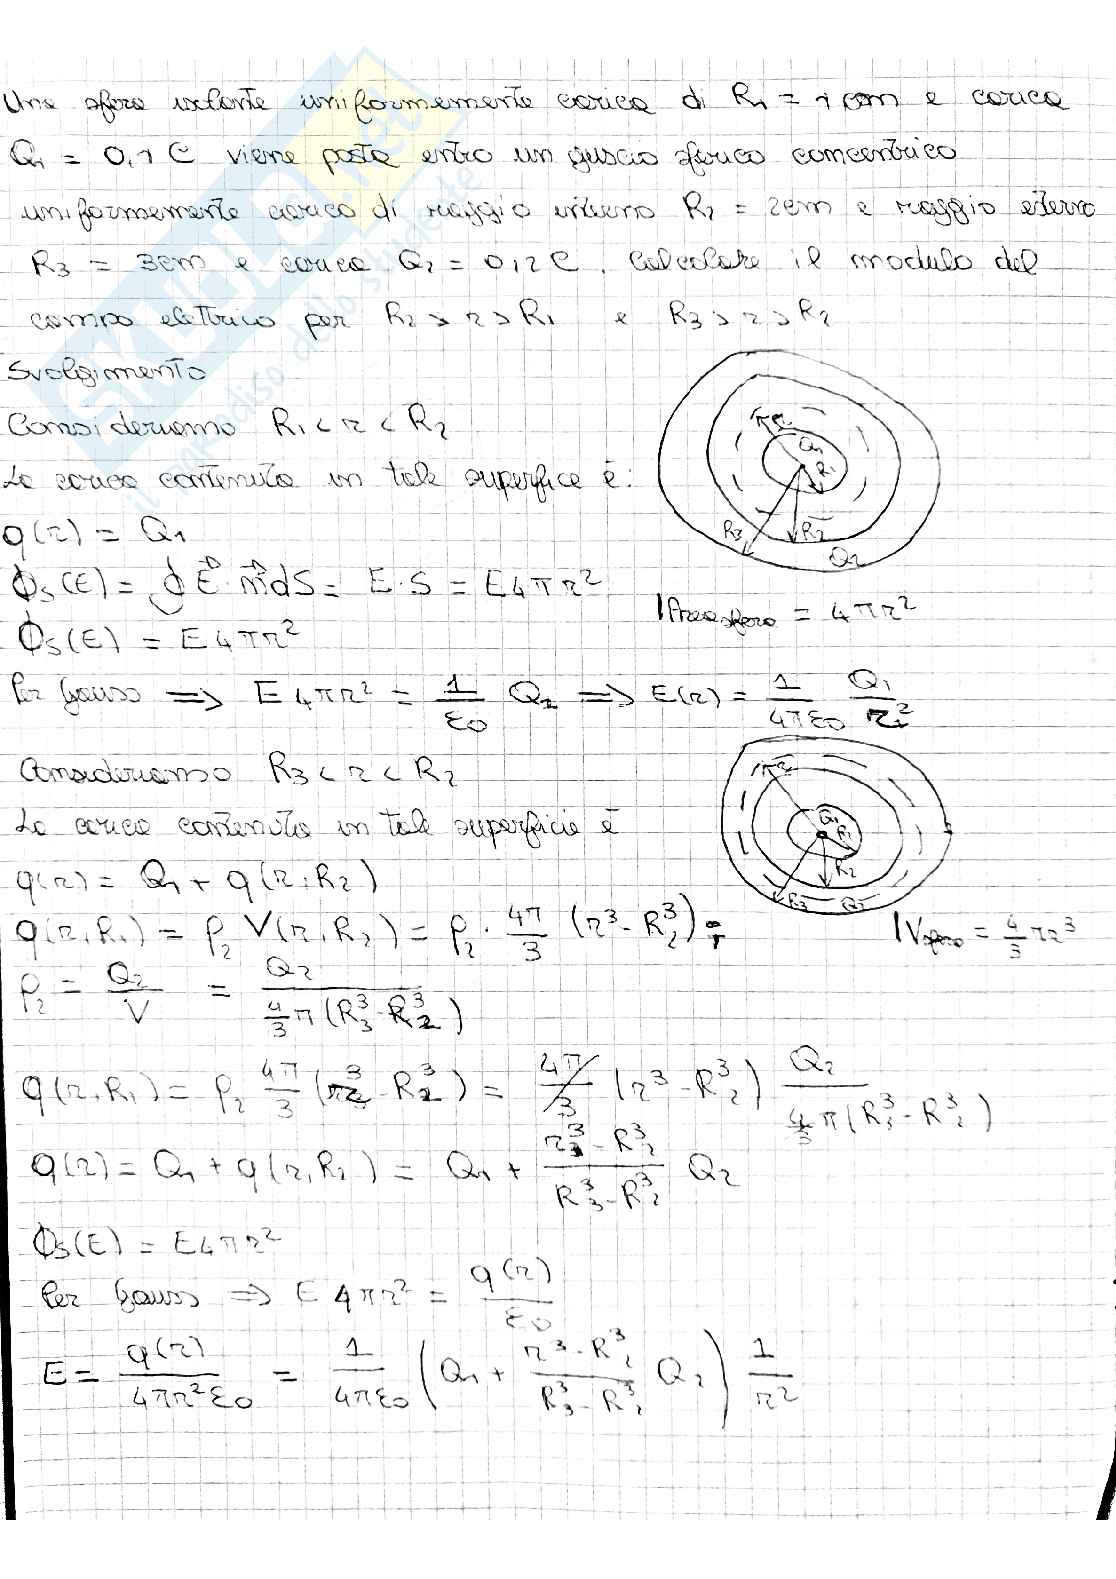 Una sfera isolante uniformemente carica di R1 = 1 cm e carica
Q1 = 0,1 C viene posta entro un guscio sferico concentrico
uniformemente carico di raggio interno R2 = 2cm e raggio esterno
R3 = 3cm e carica Q2 = 0,2 C. Calcolare il modulo del
campo elettrico per R2 > r > R1 e R3 > r > R2
Svolgimento
Consideriamo R1 < r < R2
La carica contenuta in tale superfice è:
q(r) = Q1
Φs(E) = ∮ E · n dS = E · S = E4πr²
|Area sfera = 4πr²
Φs(E) = E4πr²
Per Gauss => E4πr² = 1/ε0 Q2 => E(r) = 1/4πε0 Q1/r²
Consideriamo R3 < r < R2
La carica contenuta in tale superficie è
q(r) = Q1 + q(r, R2)
q(r, R1) = ρ2 V(r, R2) = ρ2 · 4π/3 (r³ - R2³);
|Vsfera = 4/3 πr³
ρ2 = Q2/V = Q2 / 4/3 π(R3³ - R2³)
q(r, R1) = ρ2 4π/3 (r³ - R2³) = 4π/3 (r³ - R2³) Q2 / 4/3 π(R3³ - R2³)
q(r) = Q1 + q(r, R2) = Q1 + r³ - R2³ / R3³ - R2³ Q2
Φs(E) = E4πr²
Per Gauss => E 4πr² = q(r)/ε0
E = q(r)/4πr²ε0 = 1/4πε0 (Q1 + r³ - R2³ / R3³ - R2³ Q2) 1/r²
Q1
R1
R2
R3
Q2
Q1
R1
R2
R3
Q2
SKUOLA.net
il paradiso dello studente